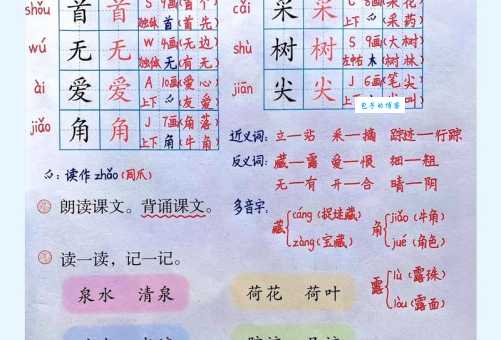 shǒu 首 首 S 9画(首个)
独体 首(首先)
wú 无 无 W 4画(无边)
独体 无(无有)
ài 爱 爱 A 10画(爱心)
上下 爫(友爱)
jiǎo 角 角 J 7画(角落)
上下 角(牛角)
cǎi 采 采 C 8画(采花)
上下 爫(采药)
shù 树 树 S 9画(大树)
左中右 木(树林)
jiān 尖 尖 J 6画(笔尖)
上下 叶)
包子的博客
爫:读作zhǎo(同爪)
近义词: 立—站 采—摘 踪迹—行踪
反义词: 藏—露 爱—恨 细—粗
无—有 开—合 晴—阴
朗读课文。背诵课文。
多音字:
藏 cáng(捉迷藏) zàng(宝藏)
角 jiǎo(牛角) jué(角色)
露 lù(露珠) lòu(露面)
读一读,记一记。
泉水 清泉 荷花 荷叶